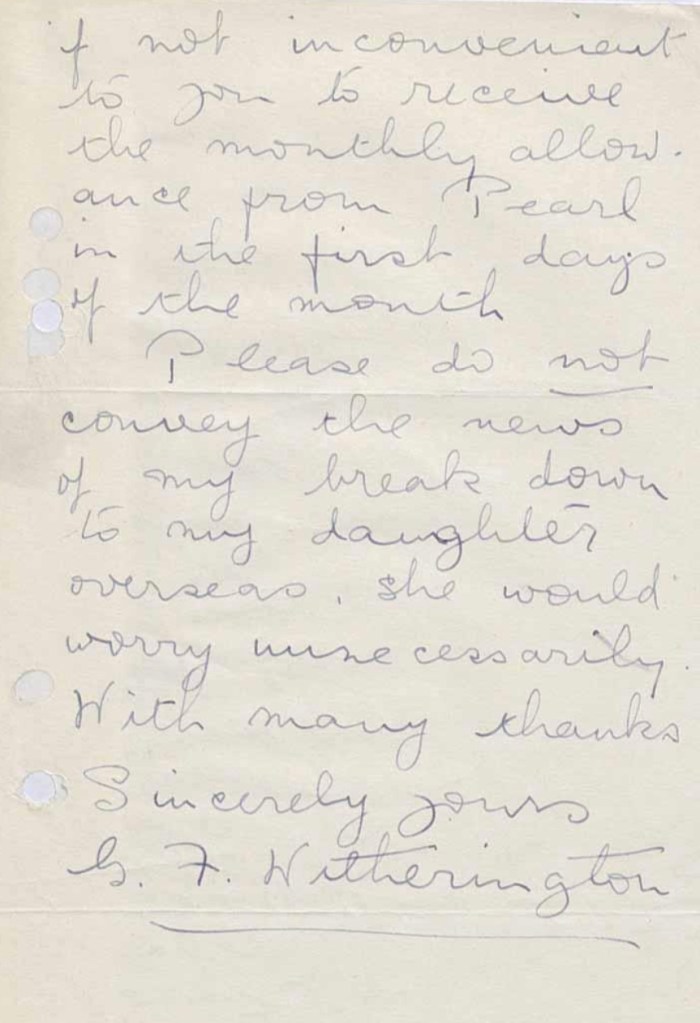 if not inconvenient
to you to receive
the monthly allow-
ance from Pearl
in the first days
of the month
Please do not
convey the news
of my break down
to my daughter
overseas. She would
worry unnecessarily.
With many thanks
Sincerely yours
G. F. Witherington